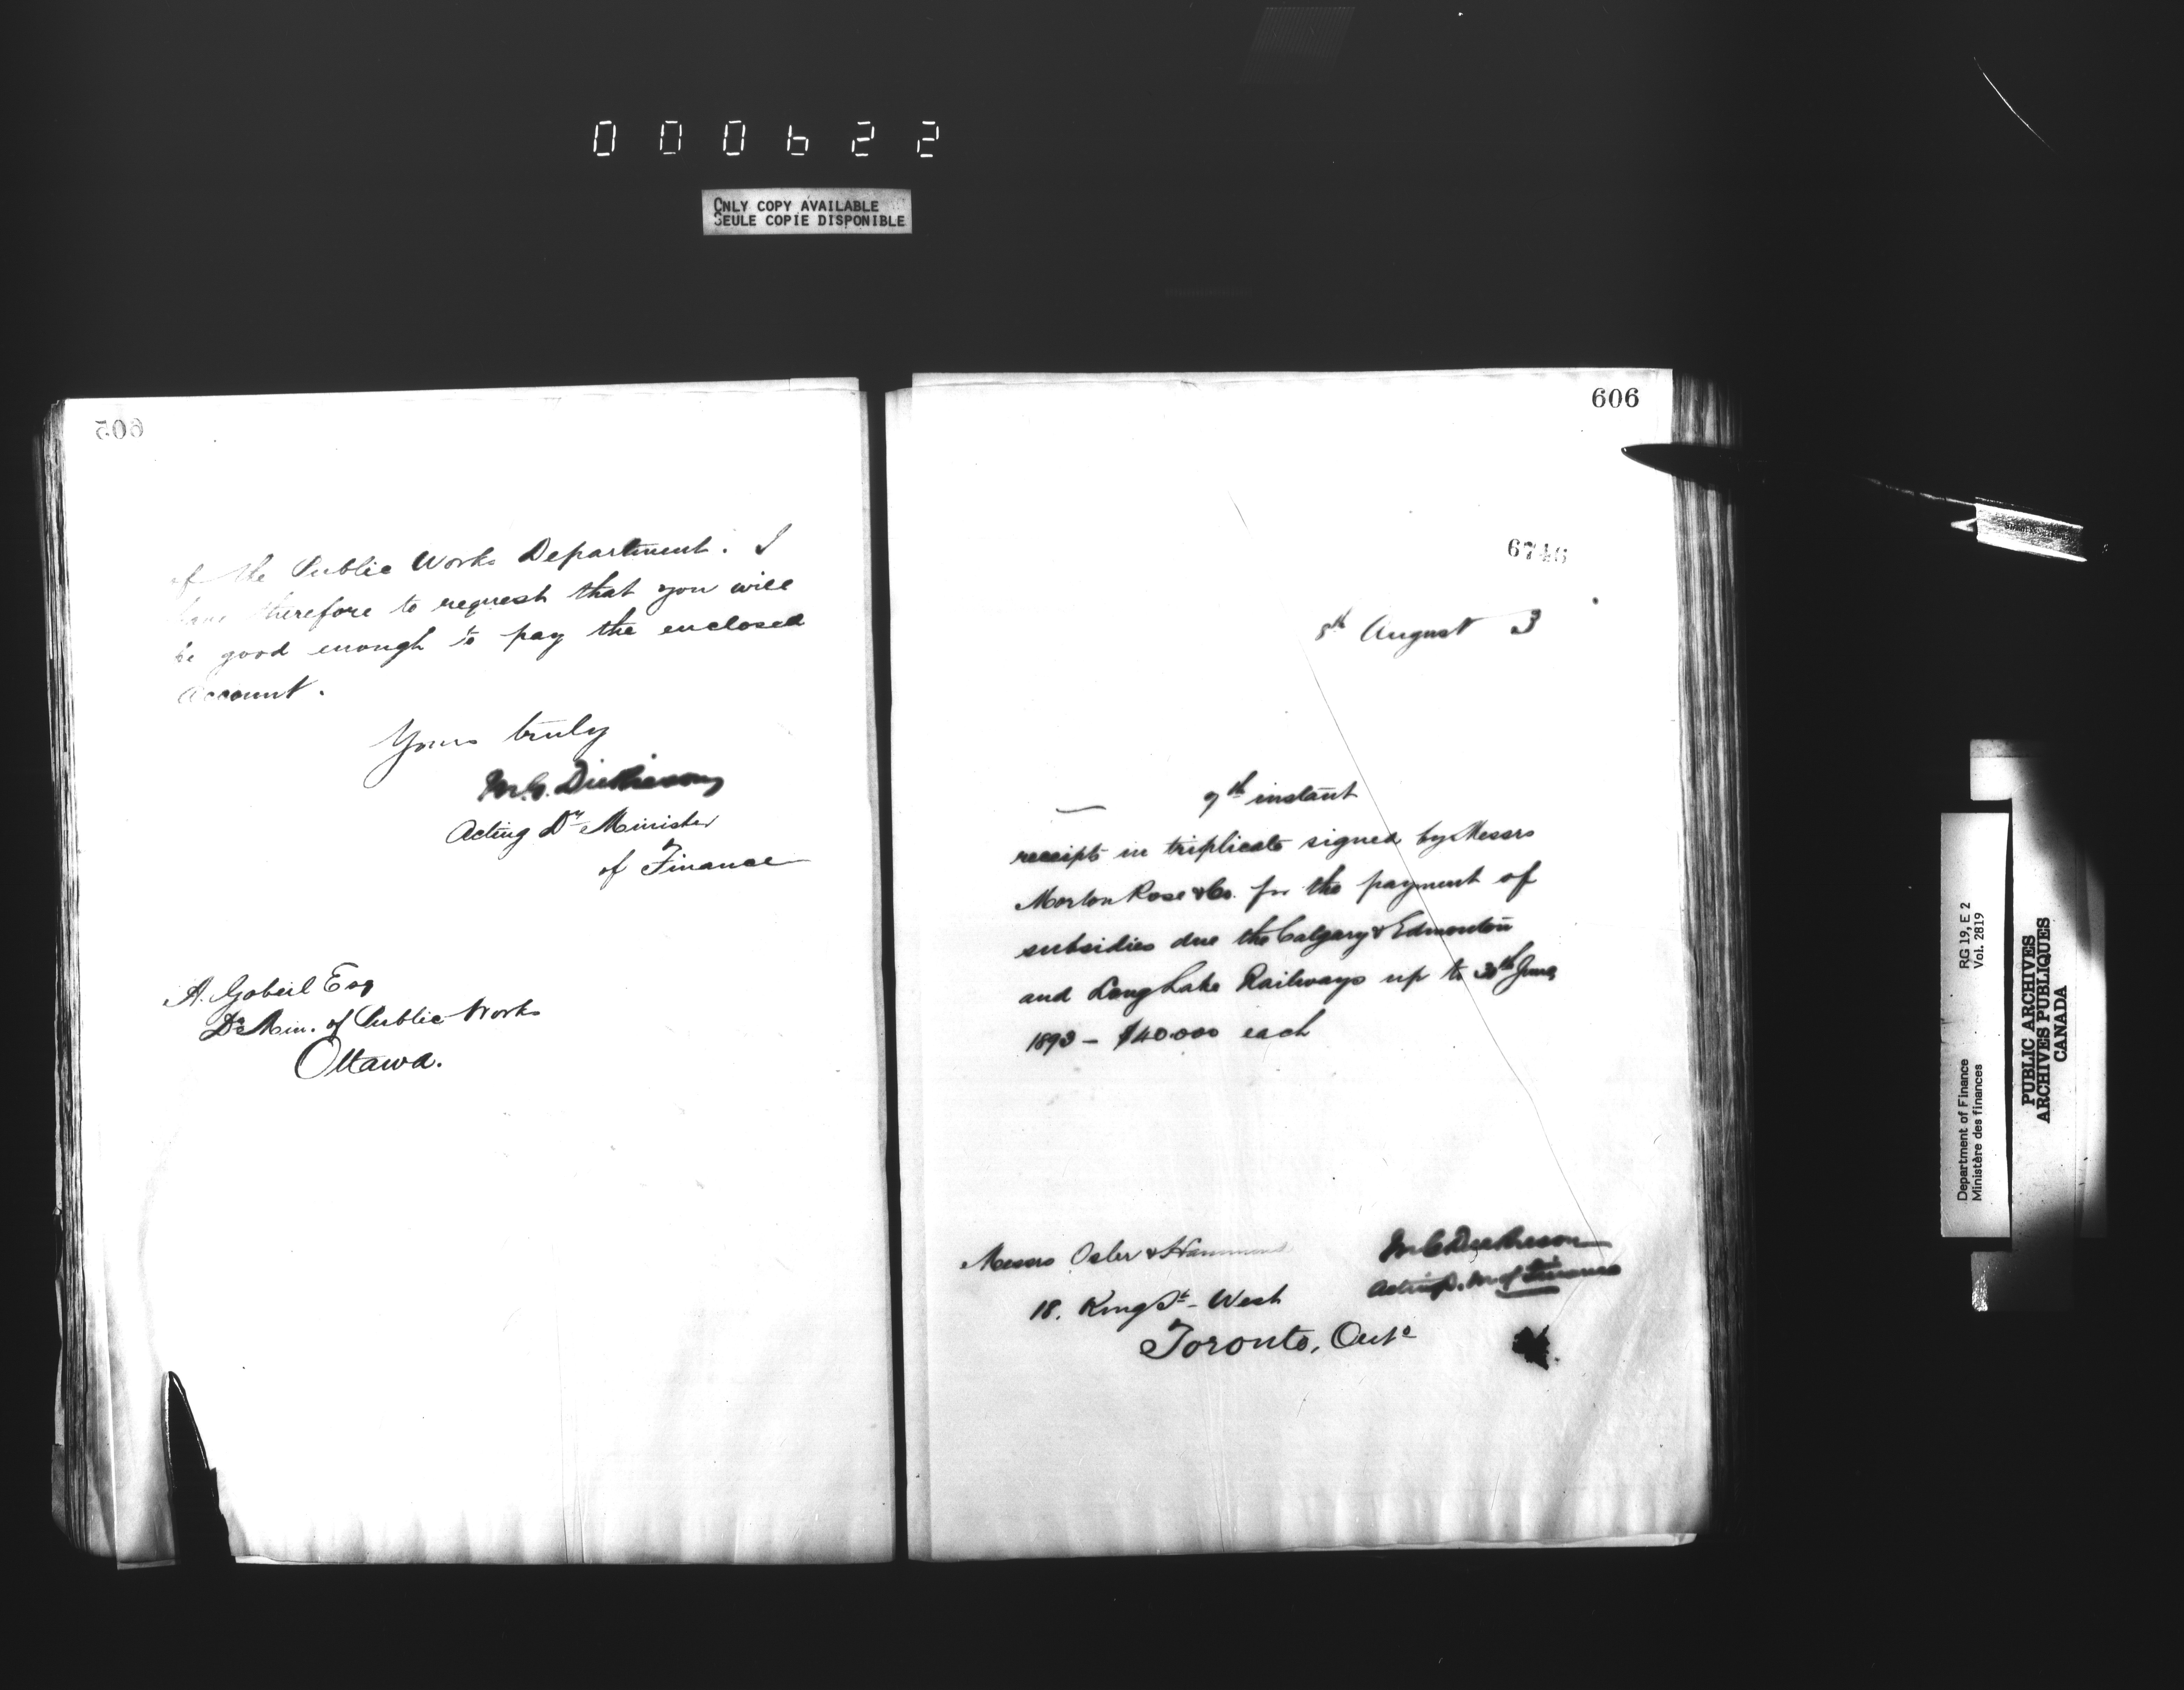 000622
ONLY COPY AVAILABLE
SEULE COPIE DISPONIBLE
605
of the Public Works Department. I
have therefore to request that you will
be good enough to pay the enclosed
account.
Yours truly
Acting Dy. Minister
of Finance
A. Gobeil Esq
Dy Min. of Public Works
Ottawa.
606
6746
8th August 3
7th instant
receipts in triplicate signed by Messrs
Morton Rose & Co. for the payment of
subsidies due the Calgary & Edmonton
and Long Lake Railways up to 30th June
1893 - $40.000 each
Messrs Osler & Hammond
Acting D. M. of Finance
18. King St. West
Toronto, Onto
Department of Finance
Ministère des finances
RG 19, E 2
Vol. 2819
PUBLIC ARCHIVES
ARCHIVES PUBLIQUES
CANADA